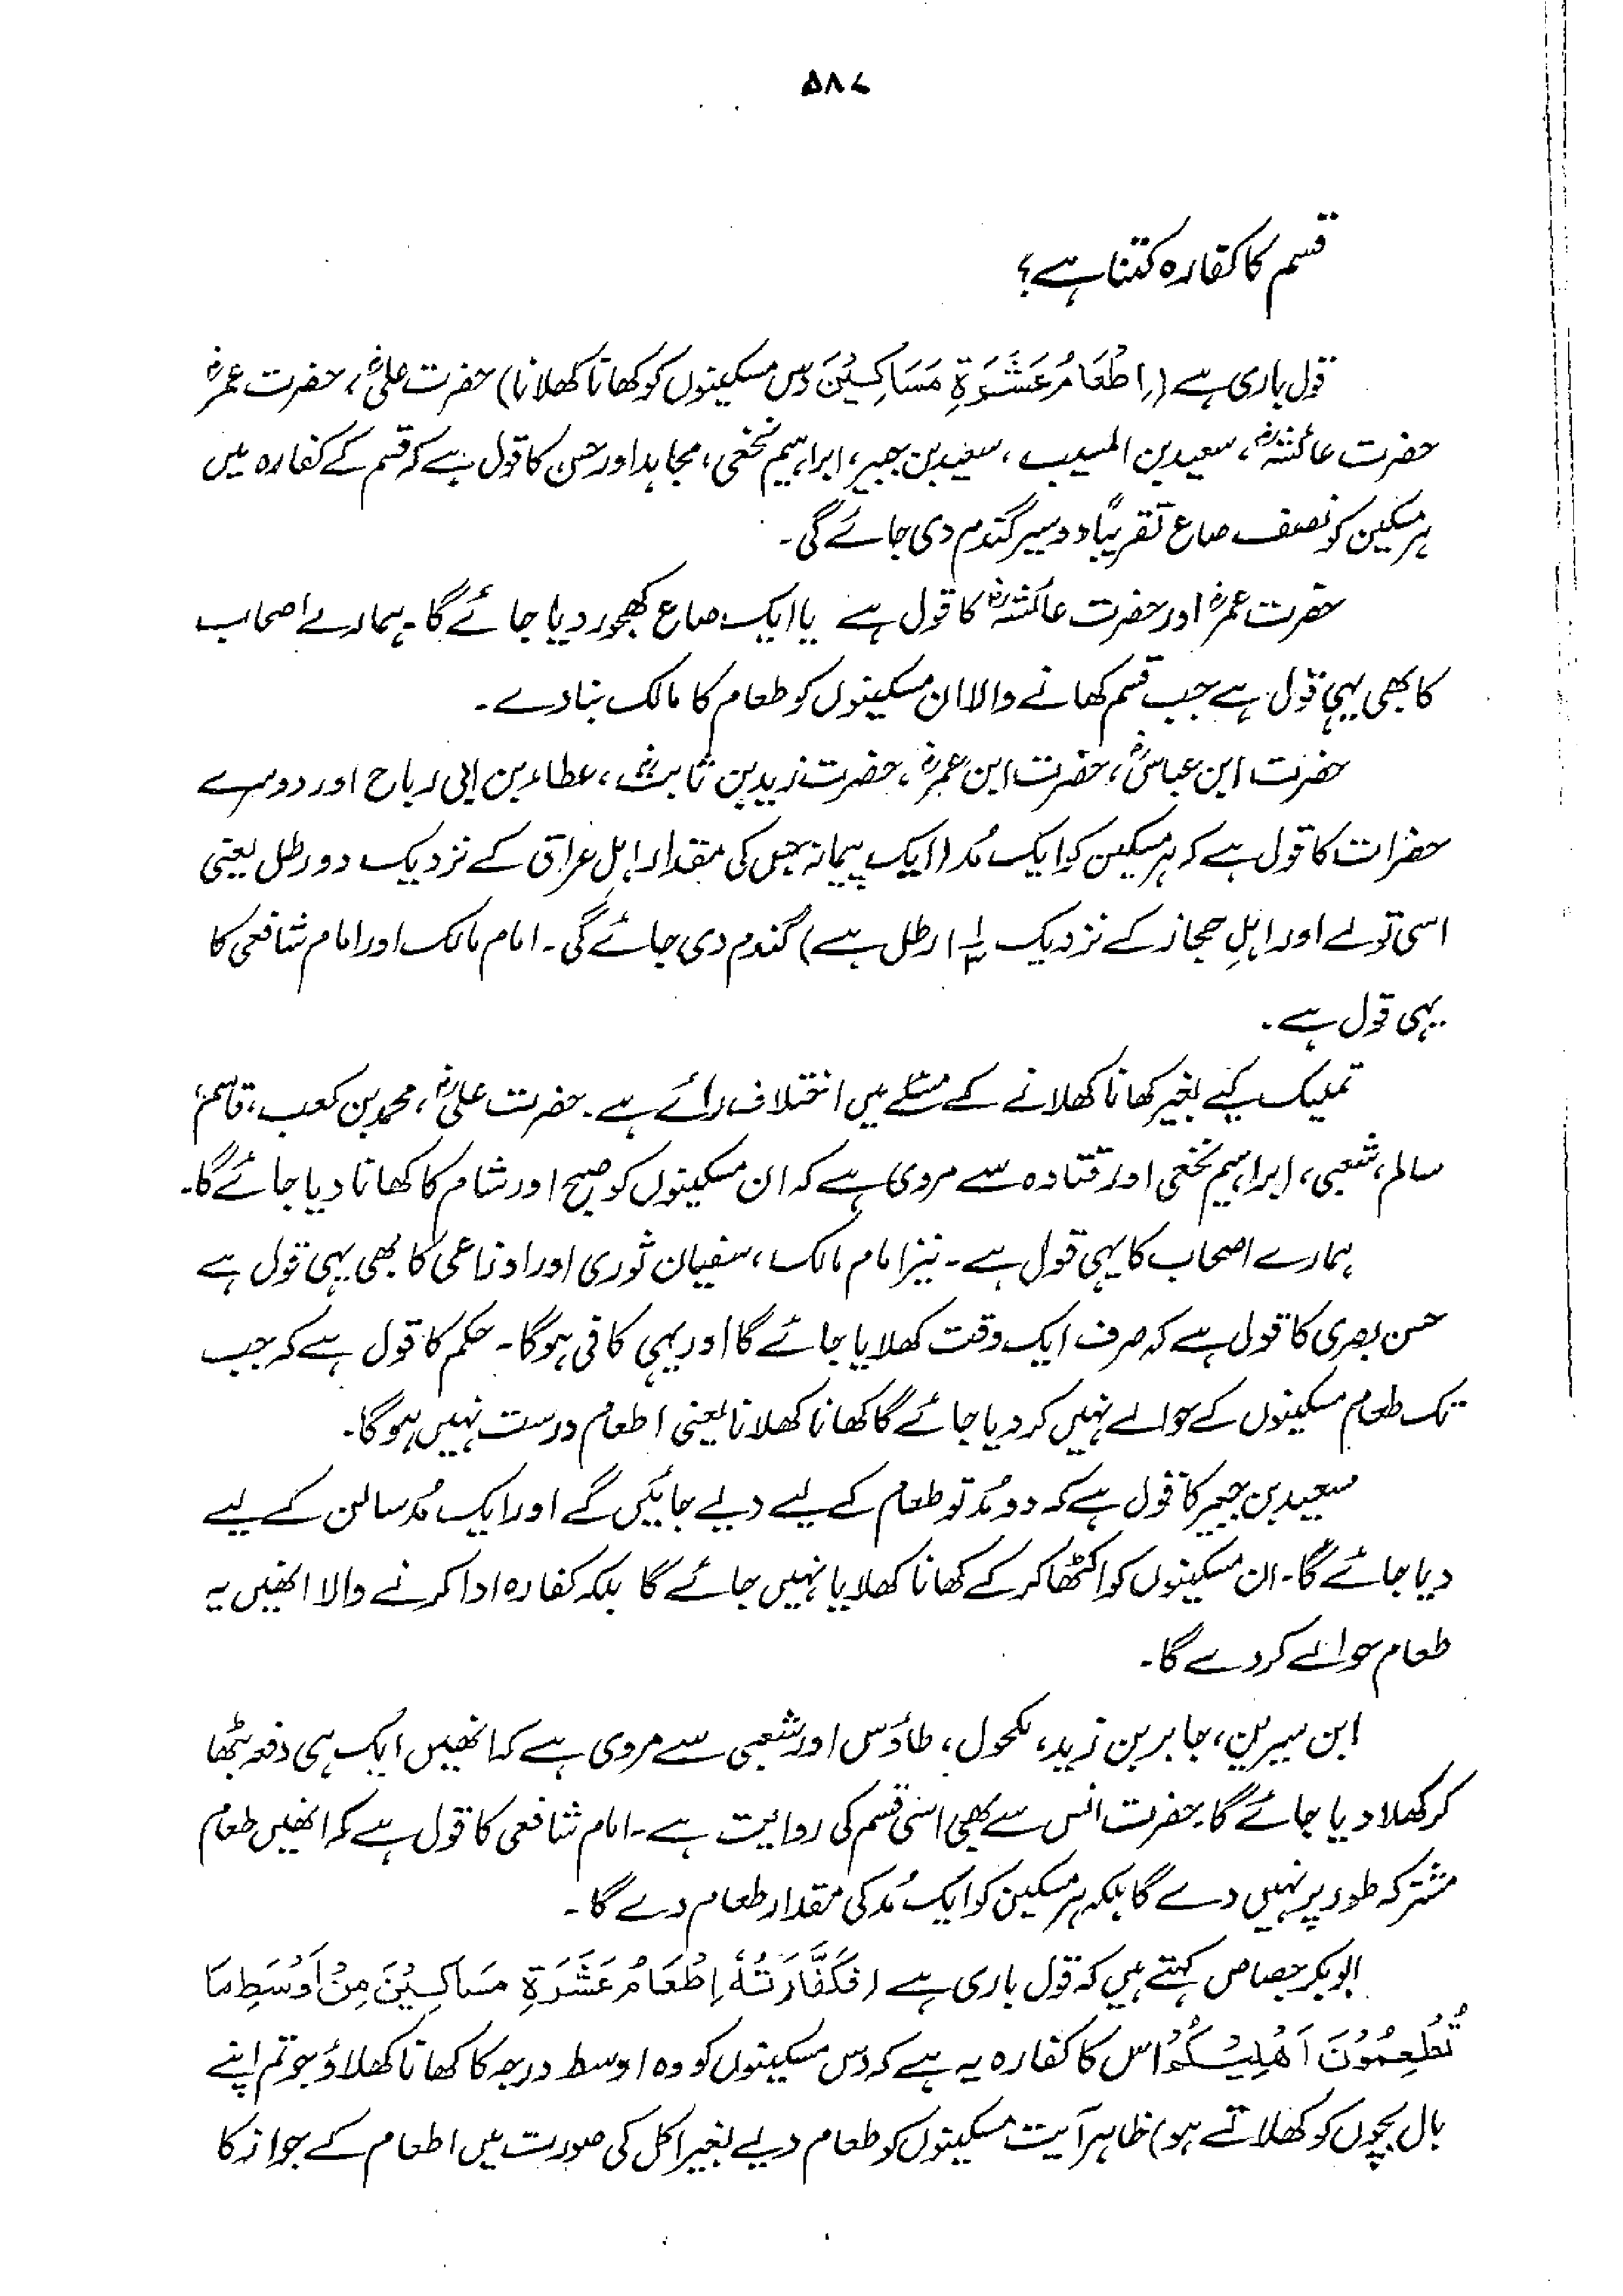 ۵۸۷
قسم کا کفارہ کتنا ہے؟
قول باری ہے (اِطْعَامُ عَشَرَةِ مَسَاكِيْنَ دس مسکینوں کو کھانا کھلانا) حضرت علیؓ، حضرت عمرؓ
حضرت عائشہؓ، سعید بن المسیب، سعید بن جبیر، ابراہیم نخعی، مجاہد اور حسن کا قول ہے کہ قسم کے کفارہ میں
ہر مسکین کو نصف صاع تقریباً دو سیر گندم دی جائے گی۔
حضرت عمرؓ اور حضرت عائشہؓ کا قول ہے یا ایک صاع کھجور دیا جائے گا۔ ہمارے اصحاب
کا بھی یہی قول ہے جب قسم کھانے والا ان مسکینوں کو طعام کا مالک بنا دے۔
حضرت ابن عباسؓ، حضرت ابن عمرؓ، حضرت زید بن ثابتؓ، عطاء بن ابی رباح اور دوسرے
حضرات کا قول ہے کہ ہر مسکین کو ایک مُد (ایک پیمانہ جس کی مقدار اہلِ عراق کے نزدیک دو رطل یعنی
اسی تولے اور اہلِ حجاز کے نزدیک ۱ ۱/۳ رطل ہے) گندم دی جائے گی۔ امام مالک اور امام شافعی کا
یہی قول ہے۔
تملیک کیے بغیر کھانا کھلانے کے مسئلے میں اختلاف رائے ہے۔ حضرت علیؓ، محمد بن کعب، قاسم،
سالم، شعبی، ابراہیم نخعی اور قتادہ سے مروی ہے کہ ان مسکینوں کو صبح اور شام کا کھانا دیا جائے گا۔
ہمارے اصحاب کا یہی قول ہے۔ نیز امام مالک، سفیان ثوری اور اوزاعی کا بھی یہی قول ہے
حسن بصری کا قول ہے کہ صرف ایک وقت کھلایا جائے گا اور یہی کافی ہوگا۔ حکم کا قول ہے کہ جب
تک طعام مسکینوں کے حوالے نہیں کر دیا جائے گا کھانا کھلانا یعنی اطعام درست نہیں ہوگا۔
سعید بن جبیر کا قول ہے کہ دو مُد تو طعام کے لیے دیے جائیں گے اور ایک مُد سالن کے لیے
دیا جائے گا۔ ان مسکینوں کو اکٹھا کر کے کھانا کھلایا نہیں جائے گا بلکہ کفارہ ادا کرنے والا انھیں یہ
طعام حوالے کر دے گا۔
ابن سیرین، جابر بن زید، مکحول، طاؤس اور شعبی سے مروی ہے کہ انھیں ایک ہی دفعہ بٹھا
کر کھلا دیا جائے گا۔ حضرت انس سے بھی اسی قسم کی روایت ہے۔ امام شافعی کا قول ہے کہ انھیں طعام
مشترکہ طور پر نہیں دے گا بلکہ ہر مسکین کو ایک مُد کی مقدار طعام دے گا۔
ابوبکر جصاص کہتے ہیں کہ قول باری ہے (فَكَفَّارَتُهٗ اِطْعَامُ عَشَرَةِ مَسَاكِيْنَ مِنْ اَوْسَطِ مَا
تُطْعِمُوْنَ اَهْلِيْكُمْ اس کا کفارہ یہ ہے کہ دس مسکینوں کو وہ اوسط درجہ کا کھانا کھلاؤ جو تم اپنے
بال بچوں کو کھلاتے ہو) ظاہر آیت مسکینوں کو طعام دیے بغیر اکل کی صورت میں اطعام کے جواز کا